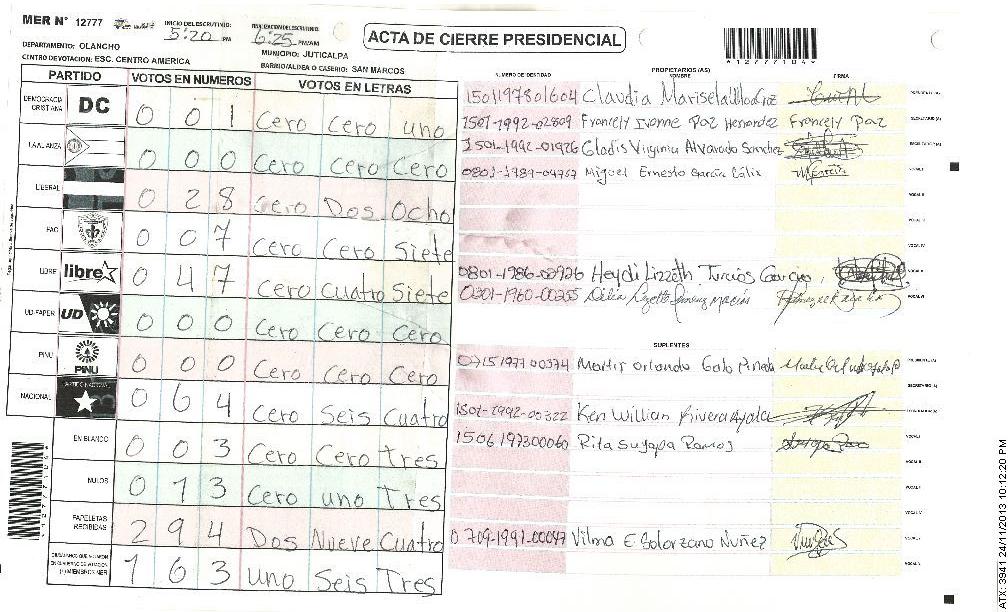 MER N° 12777
INICIO DEL ESCRUTINIO:
5:20 PM
FINALIZACION DEL ESCRUTINIO:
6:25 PM/AM
ACTA DE CIERRE PRESIDENCIAL
*12777104*
DEPARTAMENTO: OLANCHO
MUNICIPIO: JUTICALPA
CENTRO DE VOTACION: ESC. CENTRO AMERICA
BARRIO/ALDEA O CASERIO: SAN MARCOS
PARTIDO VOTOS EN NUMEROS VOTOS EN LETRAS
DEMOCRACIA CRISTIANA DC 0 0 1 Cero Cero uno
LA ALIANZA 0 0 0 Cero Cero Cero
LIBERAL 0 2 8 Cero Dos Ocho
PAC 0 0 7 Cero Cero Siete
LIBRE libre 0 4 7 Cero Cuatro Siete
UD-FAPER UD 0 0 0 Cero Cero Cero
PINU PINU 0 0 0 Cero Cero Cero
NACIONAL PARTIDO NACIONAL 0 6 4 Cero Seis Cuatro
EN BLANCO 0 0 3 Cero Cero tres
NULOS 0 1 3 Cero uno Tres
PAPELETAS RECIBIDAS 2 9 4 Dos Nueve Cuatro
1 6 3 uno Seis Tres
PROPIETARIOS (AS)
NUMERO DE IDENTIDAD NOMBRE FIRMA
1501197801604 Claudia Marisela PRESIDENTE (A)
1501-1992-02809 Francely Ivonne Paz Hernandez Francely Paz SECRETARIO (A)
1501-1992-01926 Gladis Virginia Alvarado Sanchez ESCRUTADOR (A)
0801-1984-04767 Miguel Ernesto García Célix VOCAL I
VOCAL II
VOCAL III
VOCAL IV
0801-1986-02926 Heydi Lizzeth Turcios VOCAL V
0301-1960-00255 VOCAL VI
SUPLENTES
0715197700374 Martir Orlando Galo Pineda PRESIDENTE (A)
SECRETARIO (A)
1501-1992-00322 Ken Willian Rivera Ayala ESCRUTADOR (A)
1506197300060 Rita Suyapa Ramos VOCAL I
VOCAL II
VOCAL III
VOCAL IV
0709-1991-00047 Vilma E Solorzano Nuñez VOCAL V
VOCAL VI
ATX: 3941 24/11/2013 10:12:20 PM